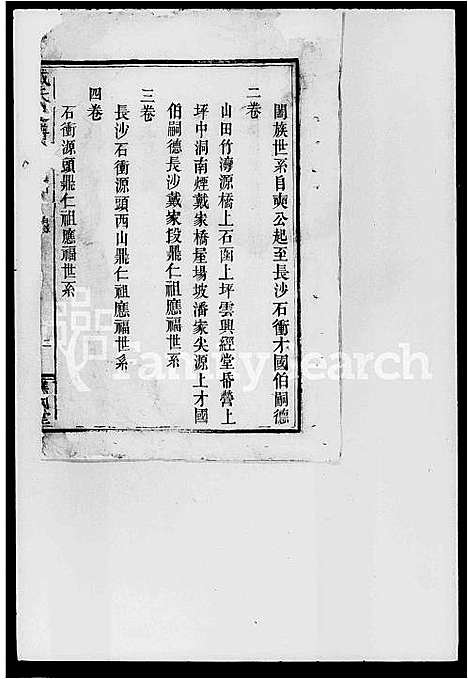 闔族世系自奭公起至長沙石衝才國伯嗣德
二卷
山田竹灣源橋上石囱上坪雲興經堂番營上
坪中洞南煙戴家橋屋場坡潘家尖源上才國
伯嗣德長沙戴家段鼎仁祖應福世系
三卷
長沙石衝源頭西山鼎仁祖應福世系
四卷
石衝源頭鼎仁祖應福世系
二
FamilySearch